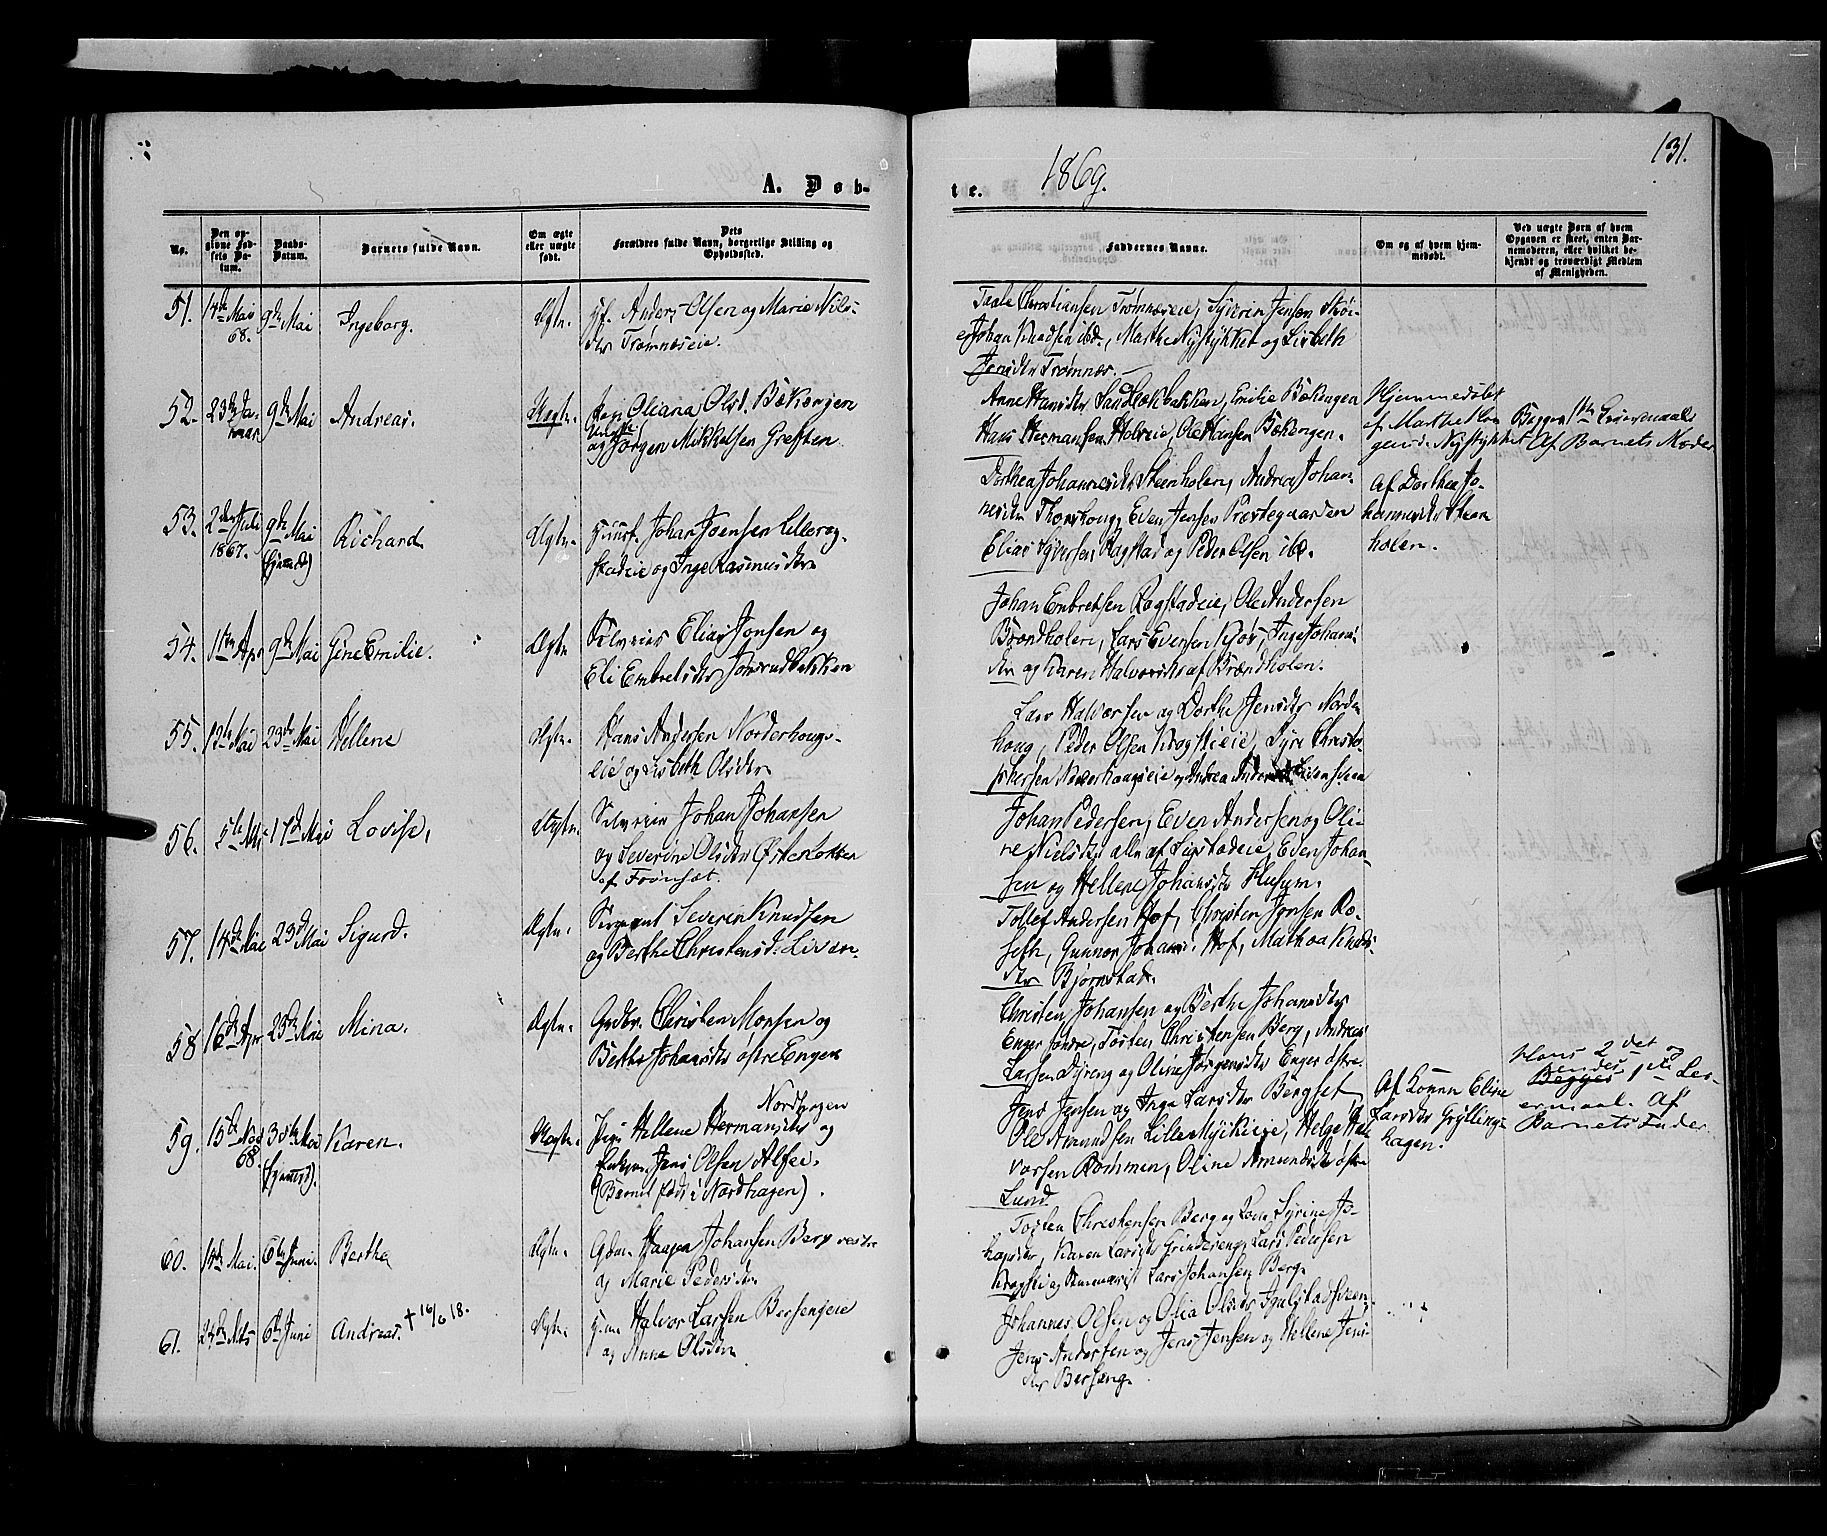 131.
1869.
A. Døb-
te.
No.
Den opgivne Fødsels Datum.
Daabs-Datum.
Barnets fulde Navn.
Om ægte eller uægte født.
Dets Forældres fulde Navn, borgerlige Stilling og Opholdssted.
Faddernes Navne.
Om og af hvem hjemmedøbt.
Ved uægte Børn af hvem Opgaven er skeet, enten Barnemoderen, eller hvilket bekjendt og troværdigt Medlem af Menigheden.
51. 14de Mai 68. 9de Mai Ingeborg. Ægte.
Hf. Anders Olsen og Marie Nils-
dtr Trømnæseie.
Christiansen Trømnæseie, Syverin Jensen
Johan Knudsen ibd., Marthe Nystykket og Lisbeth
Jensdtr Trømnæs.
52. 23de Januar 9de Mai Andreas. Uægte.
Pige Oliana Olsd. Bækengen
og Jørgen Mikkelsen Greften
Anne Hansdtr Sandbækbakken, Emilie Bækengen
Hans Hermansen Holseie, Ole Hansen Bækengen.
Hjemmedøbt
af Marthe
Nystykket
Begges 1ste Leiermaal
Af Barnets Moder
53. 2den Juli 1867. 9de Mai Richard. Ægte.
Johan Joensen
og Inge Rasmusdtr
Dorthea Johannesdtr Steenholen, Andrea Johan-
nesdtr Thorshoug, Even Jensen Præstegaarden
Elias Syversen Ragstad og Peder Olsen ibd.
Af Dorthea Jo-
hannesdtr Steen
holen.
54. 1ste Apr 9de Mai Gine Emilie. Ægte
Selveier Elias Jonsen og
Eli Embretsdtr Jonsrudbakken
Johan Embretsen Ragstadeie, Ole Andersen
Brændholen, Lars Evensen Kjos, Inge Johans-
dtr og Karen Halvorsdtr af Brændholen.
55. 12te Mai 23de Mai Hellene Ægte.
Hans Andersen Norderhougs-
eie og Lisbeth Olsdtr
Lars Halvorsen og Dorthe Jensdtr Norder
houg, Peder Olsen Krogstieie, Syver Christo-
phersen Norderhaugseie og Andrea
56. 17de Mai Lovise, Ægte.
Selveier Johan Johansen
og Severine Olsdtr Østerbakken
af Frønsæt.
Johan Pedersen, Even Andersen og Oli-
ne Nielsdtr alle af Even Johan-
sen og Hellene Johansdtr Husum.
57. 14de Mai 23de Mai Sigurd. Ægte.
Sergeant Severin Knudsen
og Berthe Christensd.
Tollef Andersen Hof, Christen Jensen Ro-
seth, Gunnar Johans. Hof, Mathea Knuds-
dtr Bjørnstad.
58 16de Apr 23de Mai Mina. Ægte.
Gdbr. Christen Monsen og
Berthe Johansdtr østre Engen
Christen Johansen og Berthe Johansdtr
Enger søndre, Tosten Christensen Berg, Andreas
Larsen Dyreng og Oline Jørgensdtr Enger østre.
59. 15de Nov 68. 30te Mai Karen. Uægte.
Nordhagen
Pige Hellene Hermansdtr og
Enkem. Jens Olsen Alfeie.
(Barnet født i Nordhagen).
Jens Jensen og Inge Larsdtr Bergset
Ole Amundsen Lille Helge Hal
vorsen Rommen, Oline Amundsdtr østre
Lund
Af Konen Eline
Larsdtr Gryllings-
hagen.
Hans 2det og
hendes 1ste Lei-
ermaal. Af
Barnets Fader
60. 14de Mai. 6te Juni. Berthe Ægte.
Gdm. Haagen Johansen Berg vestre
og Marie Pedersdtr.
Tosten Christensen Berg og Kone Syrine Jo-
hansdtr, Karen Larsdtr Grindereng, Lars Pedersen
Krogsti og Lars Johansen Berg.
61. 24de Mts 6te Juni Andreas. † 16/6 18. Ægte.
Halvor Larsen Bersengeie
og Anne Olsdtr
Johannes Olsen og Olia Olsdtr
Jens Andersen og Jens Jensen og Hellene Jens-
dtr Berseng.